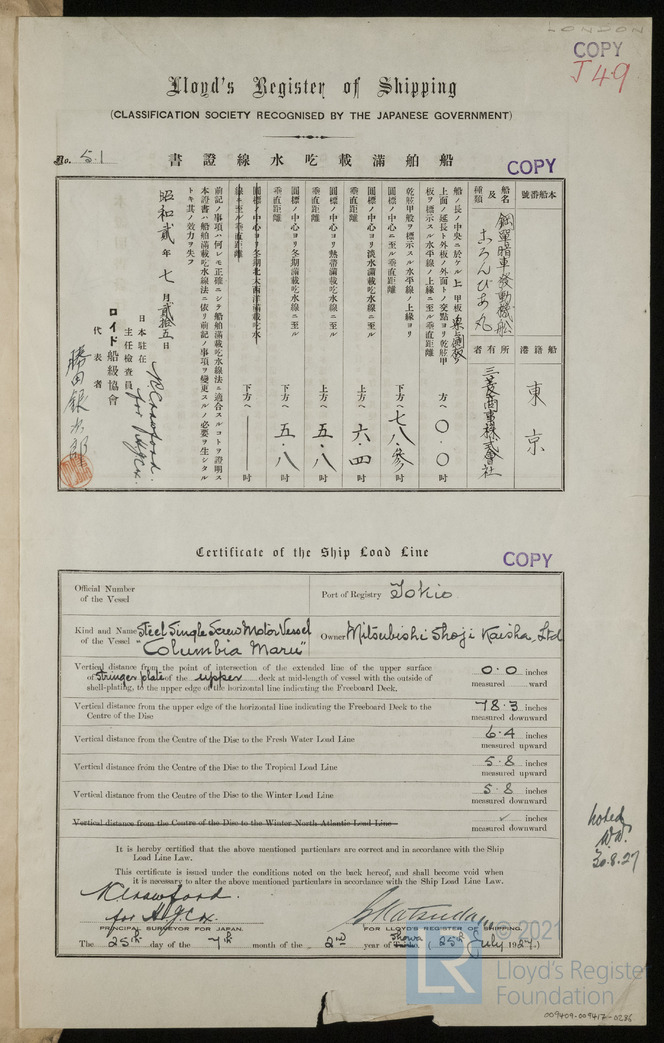 LONDON
COPY
J 49
Lloyd's Register of Shipping
(CLASSIFICATION SOCIETY RECOGNISED BY THE JAPANESE GOVERNMENT)
No. 51
書證線水吃載滿舶船
COPY
號番船本
船名及種類
鋼單暗車發動機船
ころんびあ丸
港籍船
東京
者有所
三菱商事株式會社
船ノ長ノ中央ニ於ケル上甲板梁上側板ノ
上面ノ延長ト外板ノ外面トノ交點ヨリ乾舷甲
板ヲ標示スル水平線ノ上緣ニ至ル垂直距離
方ヘ 〇・〇 吋
乾舷甲板ヲ標示スル水平線ノ上緣ヨリ
圓標ノ中心ニ至ル垂直距離
下方ヘ 七八・參 吋
圓標ノ中心ヨリ淡水滿載吃水線ニ至ル
垂直距離
上方ヘ 六・四 吋
圓標ノ中心ヨリ熱帶滿載吃水線ニ至ル
垂直距離
上方ヘ 五・八 吋
圓標ノ中心ヨリ冬期滿載吃水線ニ至ル
垂直距離
下方ヘ 五・八 吋
圓標ノ中心ヨリ冬期北大西洋滿載吃水
線ニ至ル垂直距離
下方ヘ 吋
前記ノ事項ハ何レモ正確ニシテ船舶滿載吃水線法ニ適合スルコトヲ證明ス
本證書ハ船舶滿載吃水線法ニ依リ前記ノ事項ヲ變更スルノ必要ヲ生シタル
トキ其ノ效力ヲ失フ
昭和貳年七月貳拾五日
日本駐在
主任檢查員
R Crawford.
for H.J.Cox.
ロイド船級協會
代表者
勝田銀次郎
Certificate of the Ship Load Line
COPY
Official Number
of the Vessel
Port of Registry Tokio
Kind and Name Steel Single Screw Motor Vessel
of the Vessel "Columbia Maru"
Owner Mitsubishi Shoji Kaisha, Ltd
Vertical distance from the point of intersection of the extended line of the upper surface
of Stringer plate of the upper deck at mid-length of vessel with the outside of
shell-plating, to the upper edge of the horizontal line indicating the Freeboard Deck.
0·0 inches
measured ward
Vertical distance from the upper edge of the horizontal line indicating the Freeboard Deck to the
Centre of the Disc
78·3 inches
measured downward
Vertical distance from the Centre of the Disc to the Fresh Water Load Line
6·4 inches
measured upward
Vertical distance from the Centre of the Disc to the Tropical Load Line
5·8 inches
measured upward
Vertical distance from the Centre of the Disc to the Winter Load Line
5·8 inches
measured downward
Vertical distance from the Centre of the Disc to the Winter North Atlantic Load Line
inches
measured downward
It is hereby certified that the above mentioned particulars are correct and in accordance with the Ship
Load Line Law.
This certificate is issued under the conditions noted on the back hereof, and shall become void when
it is necessary to alter the above mentioned particulars in accordance with the Ship Load Line Law.
R Crawford.
for H.J.Cox.
PRINCIPAL SURVEYOR FOR JAPAN.
G Katsuda
FOR LLOYD'S REGISTER OF SHIPPING.
The 25th day of the 7th month of the 2nd year of Showa (25th July 1927.)
noted
W.W.
30.8.27
© 2021
LR
Lloyd's Register
Foundation
009409-009417-0286